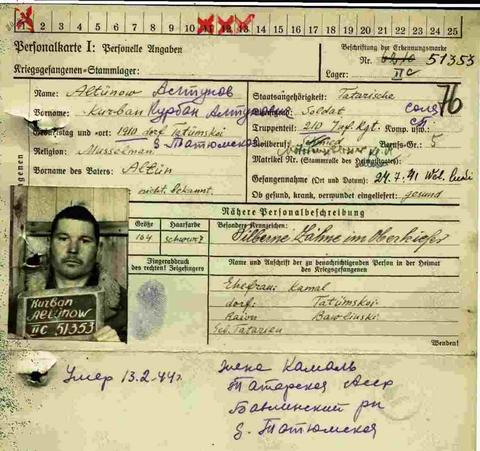 1 2 3 4 5 6 7 8 9 10 11 12 13 14 15 16 17 18 19 20 21 22 23 24 25
Personalkarte I: Personelle Angaben
Kriegsgefangenen-Stammlager:
Beschriftung der Erkennungsmarke
Nr. 51353
Lager: II C
Name: Altünow Алтунов
Vorname: Kurban Курбан
Geburtstag und -ort: 1910 dorf Tatümskoi
д. Татюмская
Religion: Musselman
Vorname des Vaters: Altün
nicht bekannt
Staatsangehörigkeit: Tatarische
76
Dienstgrad: Soldat
Truppenteil: 210 Inf. Rgt. Komp. usw.:
Berufs-Gr.: 5
Matrikel Nr.
Gefangennahme (Ort und Datum): 24.7.41
Ob gesund, krank, verwundet eingeliefert: gesund
Nähere Personalbeschreibung
Größe Haarfarbe
164 schwarz
Besondere Kennzeichen:
Silberne Zähne im Oberkiefer
Fingerabdruck
des rechten! Zeigefingers
Name und Anschrift der zu benachrichtigenden Person in der Heimat
des Kriegsgefangenen
Ehefrau: Kamal
dorf: Tatümskoi
Raion Bawlinski
Tatarien
Wenden!
Kurban
Altünow
IIC 51353
Умер 13.2.44г.
жена Камаль
Татарская Асср
Бавлинский рн
д. Татюмская